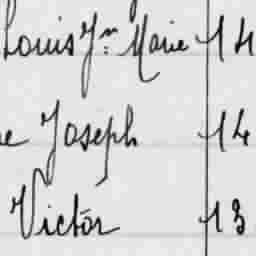 Louis Jn: Marie 14
e Joseph 14
Victor 13